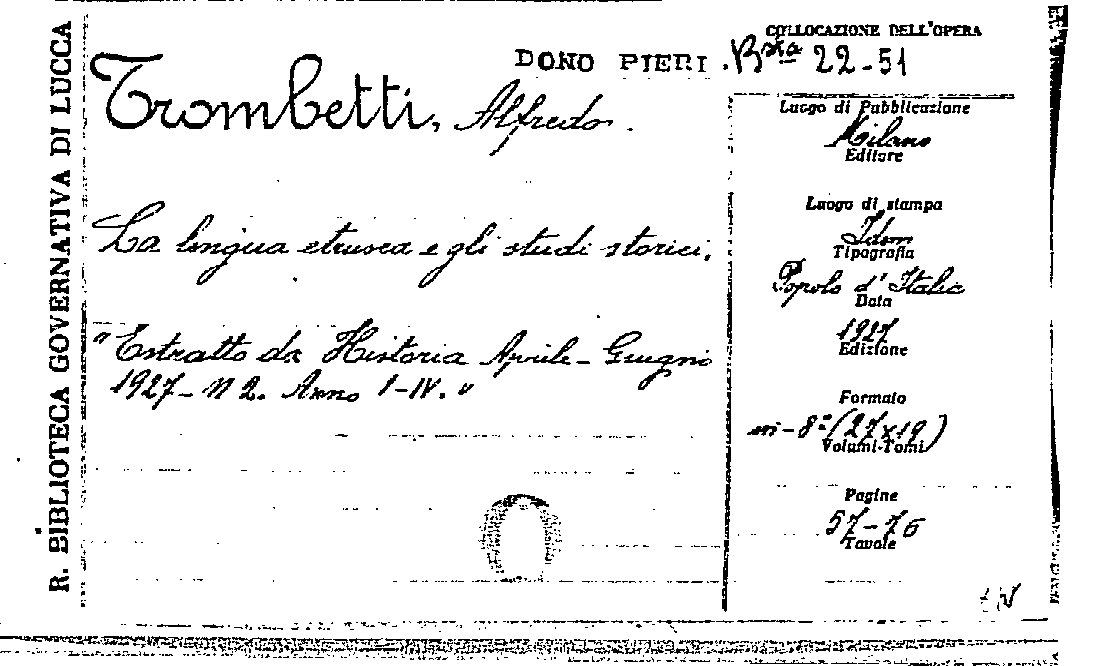 R. BIBLIOTECA GOVERNATIVA DI LUCCA
COLLOCAZIONE DELL'OPERA
DONO PIERI . Bsta 22-51
Trombetti, Alfredo.
La lingua etrusca e gli studi storici.
"Estratto da Historia Aprile-Giugno
1927-N 2. Anno I-IV."
Luogo di Pubblicazione
Milano
Editore
Luogo di stampa
Idem
Tipografia
Popolo d'Italia
Data
1927
Edizione
Formato
in-8º (27x19)
Volumi-Tomi
Pagine
57-76
Tavole